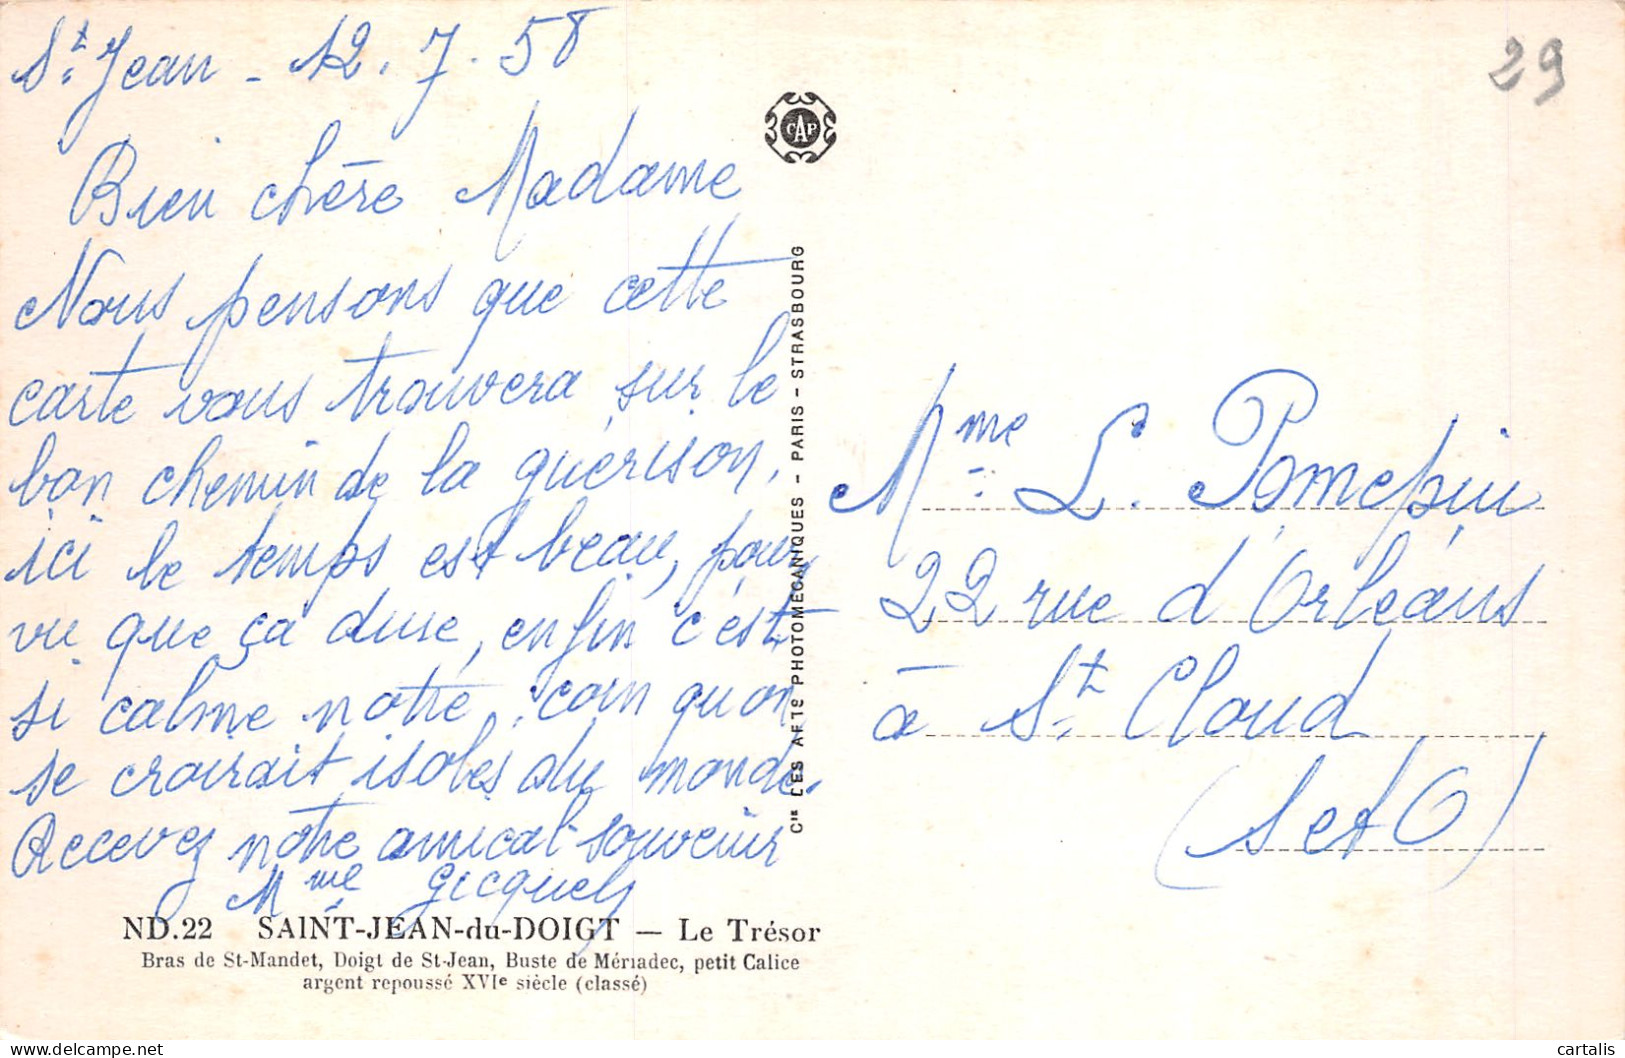 St. Jean - 12.7.58
Bien chère Madame
Nous pensons que cette
carte vous trouvera sur le
bon chemin de la guérison,
ici le temps est beau, pour
vu que ça dure, enfin c'est
si calme notre coin qu'on
se croirait isolés du monde.
Recevez notre amical souvenir
Mme Gicquel
ND.22 SAINT-JEAN-du-DOIGT — Le Trésor
Bras de St-Mandet, Doigt de St-Jean, Buste de Mériadec, petit Calice
argent repoussé XVIe siècle (classé)
CAP
Cie DES ARTS PHOTOMÉCANIQUES - PARIS - STRASBOURG
29
Mme L. Pomepuis
22 rue d'Orléans
à St. Cloud
(S et O)
cartalis